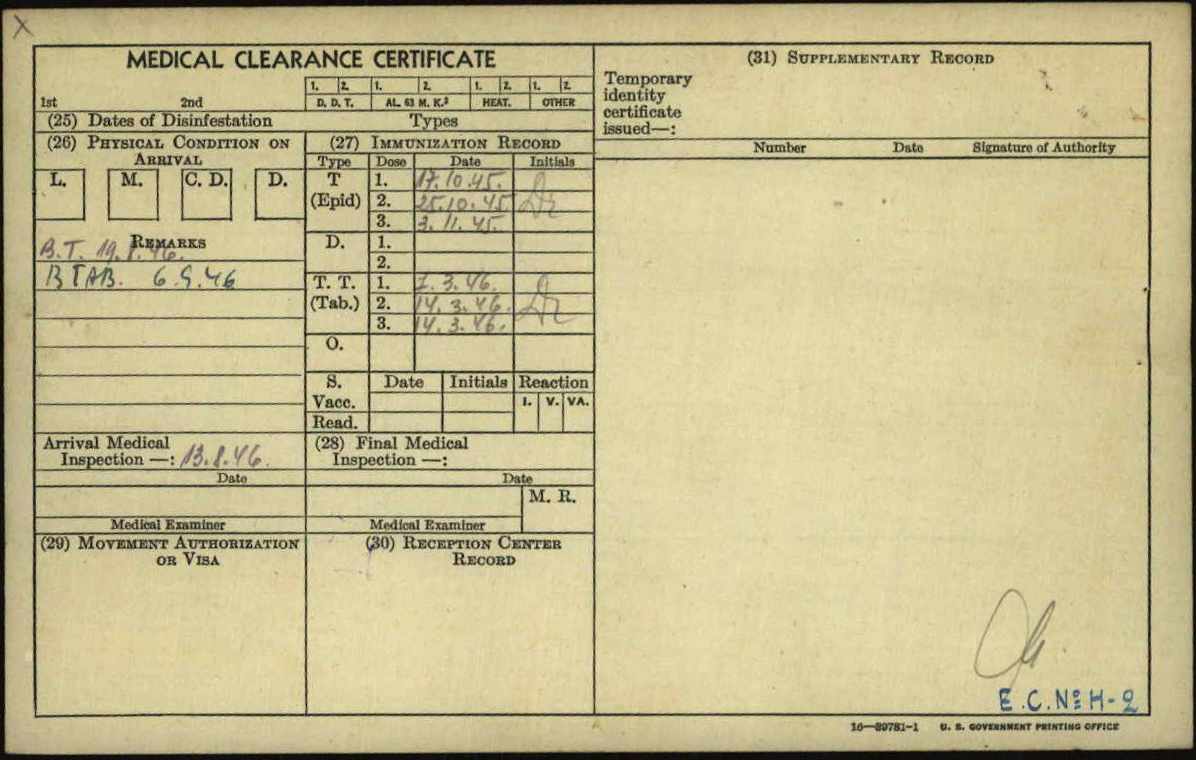 X
MEDICAL CLEARANCE CERTIFICATE
1. 2. 1. 2. 1. 2. 1. 2.
1st 2nd D. D. T. AL. 63 M. K.³ HEAT. OTHER
(25) Dates of Disinfestation Types
(26) PHYSICAL CONDITION ON
ARRIVAL
L. M. C. D. D.
REMARKS
B.T. 19.8.46.
B TAB. 6.9.46
Arrival Medical
Inspection —: 13.8.46.
Date
Medical Examiner
(27) IMMUNIZATION RECORD
Type Dose Date Initials
T 1. 17.10.45.
(Epid) 2. 25.10.45. Dr
3. 3.11.45.
D. 1.
2.
T. T. 1. 7.3.46.
(Tab.) 2. 14.3.46. Dr
3. 14.3.46.
O.
S. Date Initials Reaction
Vacc. I. V. VA.
Read.
(28) Final Medical
Inspection —:
Date
M. R.
Medical Examiner
(29) MOVEMENT AUTHORIZATION
OR VISA
(30) RECEPTION CENTER
RECORD
(31) SUPPLEMENTARY RECORD
Temporary
identity
certificate
issued—:
Number Date Signature of Authority
E.C.Nº H-2
16—39781-1 U. S. GOVERNMENT PRINTING OFFICE